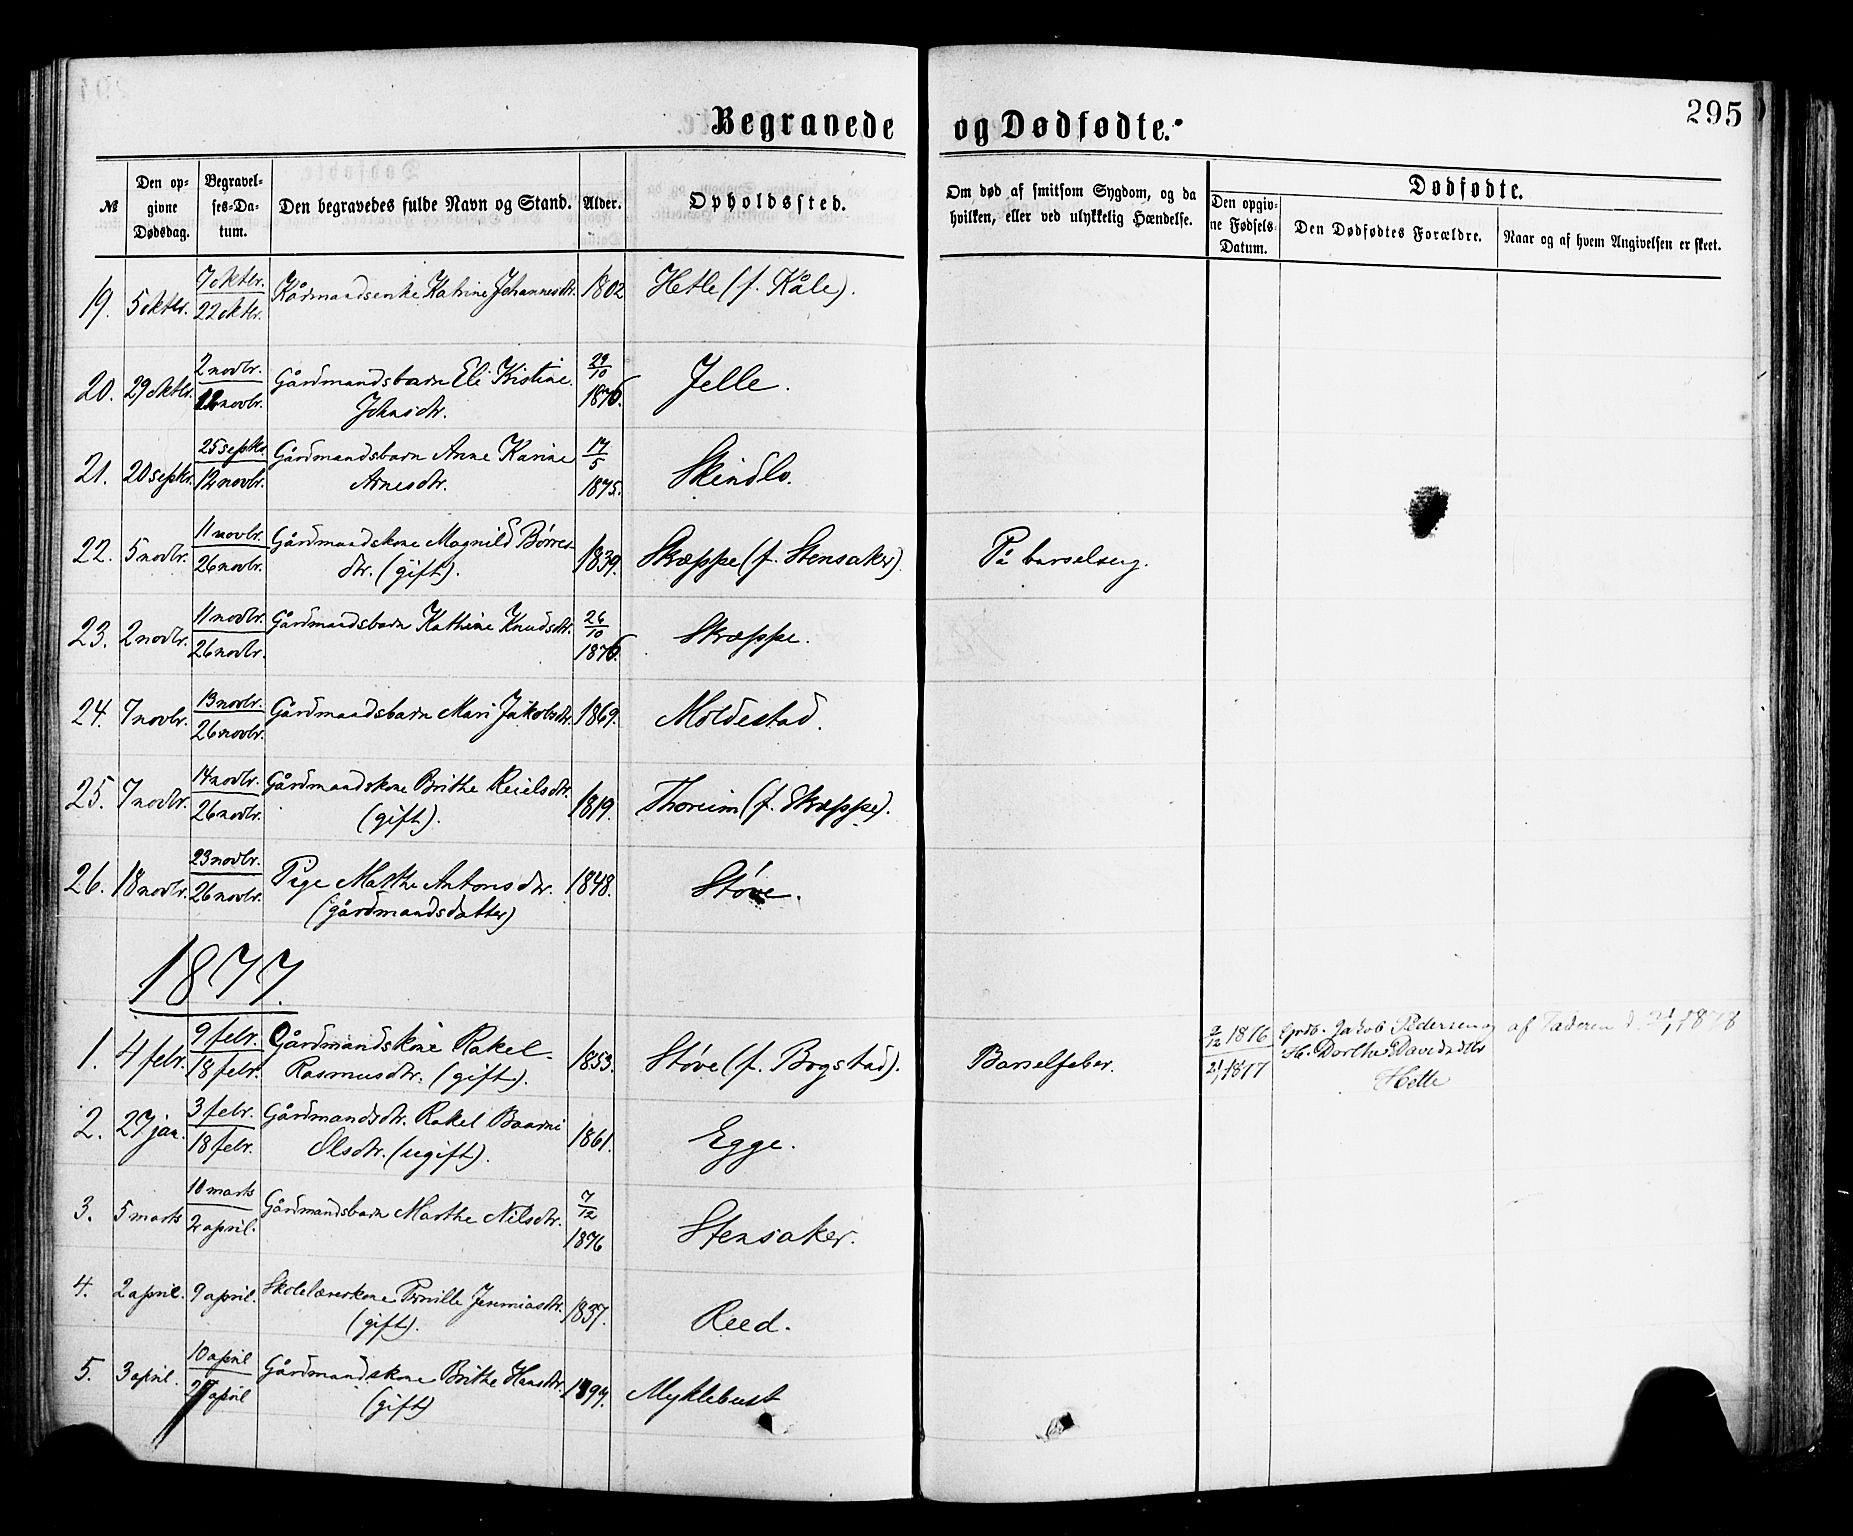 Begravede og Dødfødte.
295
№ Den opgivne Dødsdag. Begravelses-Datum. Den begravedes fulde Navn og Stand. Alder. Opholdssted. Om død af smitsom Sygdom, og da hvilken, eller ved ulykkelig Hændelse. Dødfødte. Den opgivne Fødsels-Datum. Den Dødfødtes Forældre. Naar og af hvem Angivelsen er skeet.
19. 5 oktbr. 7 oktbr. 22 oktbr. Kårmandsenke Katrine Johannesdtr. 1802 Hetle (f. Kåle).
20. 29 oktbr. 2 novbr. 12 novbr. Gårdmandsbarn Eli Kristine 29/10 1876. Jelle.
Johnsdtr.
21. 20 septbr. 25 septbr. 12 novbr. Gårdmandsbarn Anne Karine 17/5 1875. Skindlo.
Arnesdtr.
22. 5 novbr. 11 novbr. 26 novbr. Gårdmandskone Magnild Børres- 1839. Skræppe (f. Stensaker). På barselseng.
dtr. (gift).
23. 2 novbr. 11 novbr. 26 novbr. Gårdmandsbarn Kathine Knudsdtr. 26/10 1876. Skræppe.
24. 7 novbr. 13 novbr. 26 novbr. Gårdmandsbarn Mari Jakobsdtr. 1869. Moldestad.
25. 7 novbr. 14 novbr. 26 novbr. Gårdmandskone Brithe Reielsdtr. 1819. Thoreim (f. Skræppe).
(gift).
26. 18 novbr. 23 novbr. 26 novbr. Pige Marthe Antonsdtr. 1848. Støve.
(gårdmandsdatter)
1877.
1. 4 febr. 9 febr. 18 febr. Gårdmandskone Rakel 1853. Støve (f. Bogstad). Barselfeber. 2/12 1876 Jakob Pedersen og af Faderen d. 1878
Rasmusdtr. (gift). 1877 H. Dorthe Davidsdtr
Hetle
2. 27 jan. 3 febr. 18 febr. Gårdmandsdtr. Rakel Baarni 1861. Egge.
Olsdtr. (ugift).
3. 5 marts 10 marts 2 april. Gårdmandsbarn Marthe Nilsdtr. 7/12 1876 Stensaker.
4. 2 april. 9 april. Skolelærerkone Pernille Jeremiasdtr. 1837. Reed.
(gift).
5. 3 april. 10 april april Gårdmandskone Brithe Hansdtr. Myklebust
(gift)